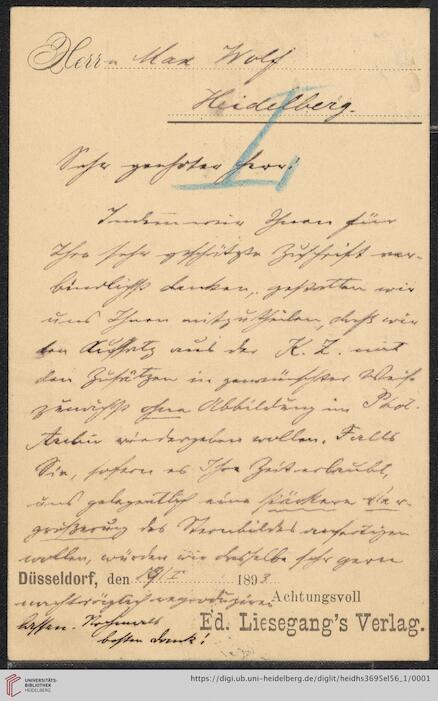 Herrn Max Wolf
Heidelberg.
I
Sehr geehrter Herr!
Indem wir Ihnen für
Ihre sehr geschätzte Zuschrift ver-
bindlichst danken, gestatten wir
uns Ihnen mitzutheilen, daß wir
den Aufsatz aus der K. Z. mit
den Zusätzen in gewünschter Weise
zunächst ohne Abbildung im Phot.
Archiv wiedergeben wollen. Falls
Sie, sofern es Ihre Zeit erlaubt,
uns gelegentlich eine stärkere Ver-
größerung des Sternbildes anfertigen
wollen, würden wir dieselbe sehr gern
Düsseldorf, den 19/I 189
nachträglich reproduziren
Achtungsvoll
lassen. Nochmals
besten Dank!
Ed. Liesegang's Verlag.
UNIVERSITÄTS-
BIBLIOTHEK
HEIDELBERG
https://digi.ub.uni-heidelberg.de/diglit/heidhs3695el56_1/0001